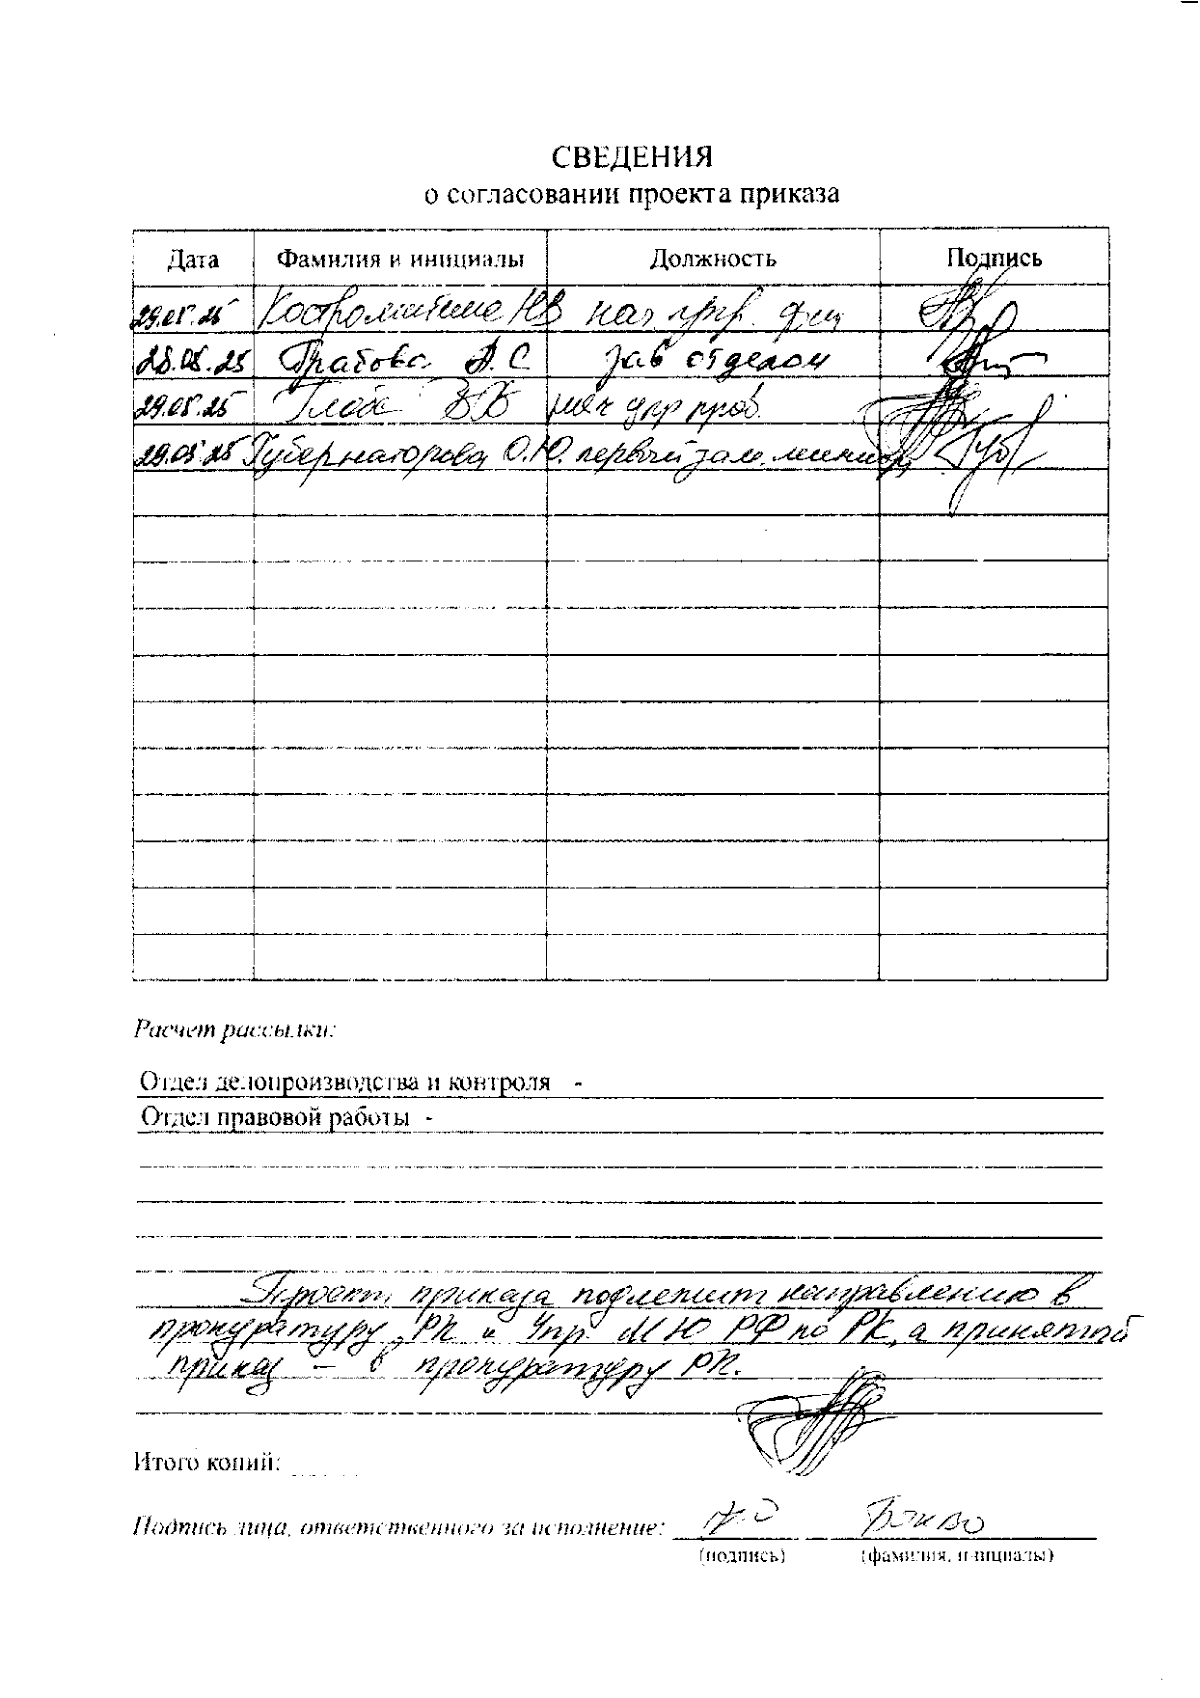 СВЕДЕНИЯ
о согласовании проекта приказа
Дата Фамилия и инициалы Должность Подпись
29.05.25 НВ нач
28.05.25 А.С зав отделом
29.05.25 нач упр проб.
29.05.25 Губернаторова О.Ю. первый зам.
Расчет рассылки:
Отдел делопроизводства и контроля -
Отдел правовой работы -
Проект приказа подлежит направлению в
прокуратуру РК и Упр МЮ РФ по РК, а принятой
приказ – в прокуратуру РК.
Итого копий:
Подпись лица, ответственного за исполнение:
(подпись) (фамилия, инициалы)